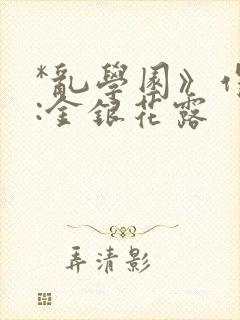 *亂學園》
:金銀花露
弄清影